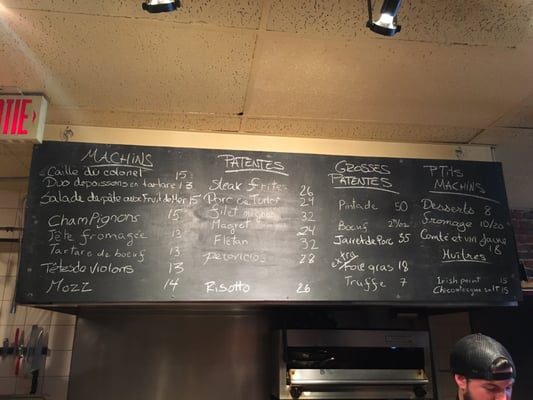 TIE
MACHINS
Caille du colonel 15
Duo de poissons en tartare 13
Salade de pâte aux Fruit de Mer 15
Champignons 15
Tête fromagée 13
Tartare de boeuf 13
Têtes de violons 13
Mozz 14
PATENTES
Steak frites 26
Porc 24
Filet mignon 32
Magret 24
Flétan 32
28
Risotto 26
GROSSES
PATENTES
Pintade 50
Boeuf
Jarret de Porc 35
extra
Foie gras 18
Truffe 7
PTITS
MACHINS
Desserts 8
fromage 10/20
Comté et vin Jaune
18
Huîtres
Irish point 15
15